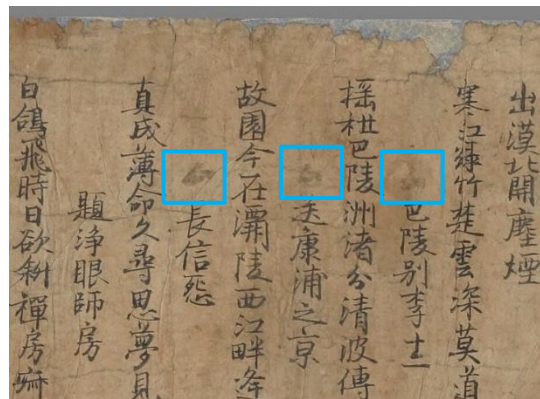 出漠北開塵煙
寒江綠竹楚雲深莫道
巴陵别李十二
摇枻巴陵洲渚分清波傳
送康浦之京
故園今在灞陵西江畔逢
長信怨
真成薄命久尋思夢見
題淨眼師房
白鴿飛時日欲斜禪房